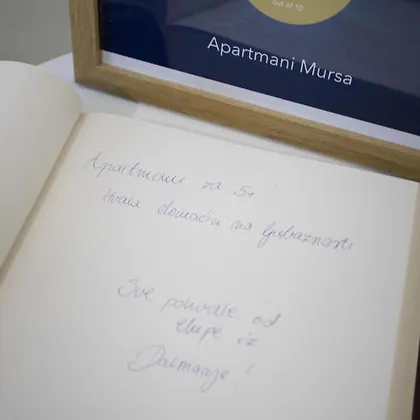 out of 10
Apartmani Mursa
Apartmani za 5+!
Hvala domaćini na ljubaznosti
Sve pohvale od
ekipe iz
Dalmacije!